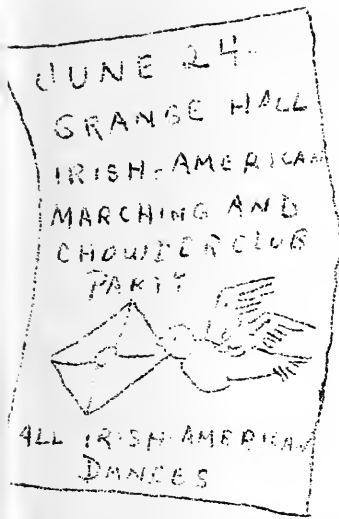 JUNE 24.
GRANGE HALL
IRISH-AMERICAN
MARCHING AND
CHOWDER CLUB
PARTY
ALL IRISH-AMERICAN
DANCES